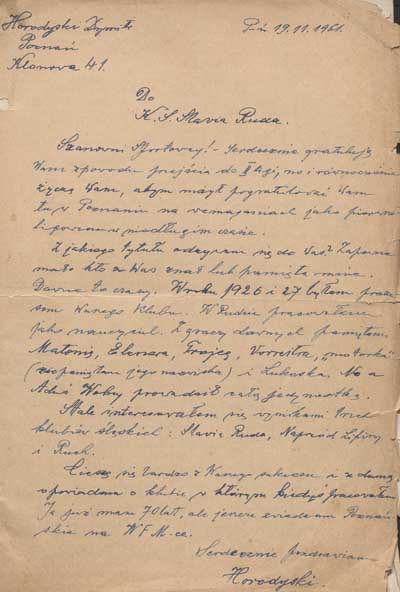 Horodyski Zymilt
Poznań
Klonowa 41.
P-ń 19.11.1961.
Do
K.S. Slavia Ruda.
Szanowni Sportowcy! - Serdecznie gratuluję
Wam z powodu przejścia do II ligi, no i równocześnie
życzę Wam, abym mógł pogratulować Wam
tu, w Poznaniu na zawodach jako pierwszo-
ligowcom w niedługim czasie.
Z jakiego tytułu odzywam się do Was? Zapewne
mało kto z Was znał lub pamięta mnie.
Dawne to czasy. W roku 1926 i 27 byłem preze-
sem Waszego Klubu. W Rudzie pracowałem
jako nauczyciel. Z graczy dawnych pamiętam
Matonię, Elsnera, Frojcę,
(nie pamiętam jego nazwiska) i Luboska. No a
prowadził całą jedynastkę.
Stale interesowałem się wynikami trzech
klubów śląskich: Slavia Ruda, Naprzód Lipiny
i Ruch.
Cieszę się bardzo z Waszego sukcesu i z dumą
opowiadam o klubie, w którym kiedyś pracowałem
Ja już mam 70 lat, ale jeszcze zwiedzam Poznań-
skie na WFM-ce.
Serdecznie pozdrawiam
Horodyski.